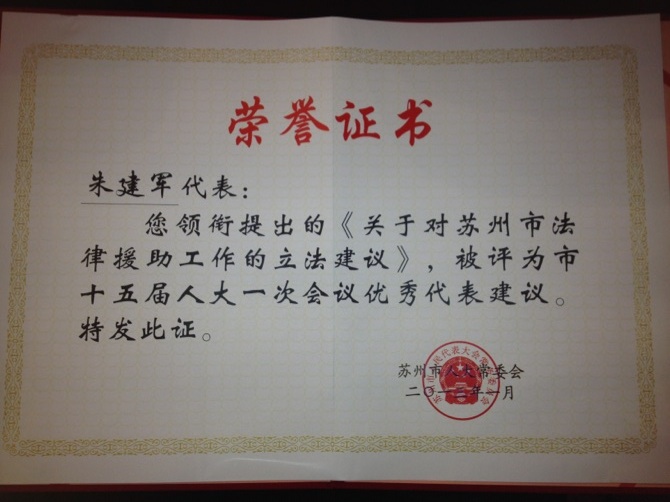 荣誉证书
朱建军代表：
您领衔提出的《关于对苏州市法
律援助工作的立法建议》，被评为市
十五届人大一次会议优秀代表建议。
特发此证。
苏州市人大常委会
二〇一三年一月